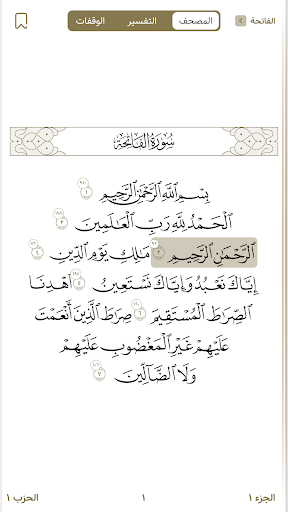 الفاتحة
المصحف
التفسير
الوقفات
سُورَةُ الْفَاتِحَةِ
بِسْمِ ٱللَّهِ ٱلرَّحْمَٰنِ ٱلرَّحِيمِ ١
ٱلْحَمْدُ لِلَّهِ رَبِّ ٱلْعَٰلَمِينَ ٢
ٱلرَّحْمَٰنِ ٱلرَّحِيمِ ٣ مَٰلِكِ يَوْمِ ٱلدِّينِ ٤
إِيَّاكَ نَعْبُدُ وَإِيَّاكَ نَسْتَعِينُ ٥ ٱهْدِنَا
ٱلصِّرَٰطَ ٱلْمُسْتَقِيمَ ٦ صِرَٰطَ ٱلَّذِينَ أَنْعَمْتَ
عَلَيْهِمْ غَيْرِ ٱلْمَغْضُوبِ عَلَيْهِمْ
وَلَا ٱلضَّآلِّينَ ٧
الجزء ١
١
الحزب ١